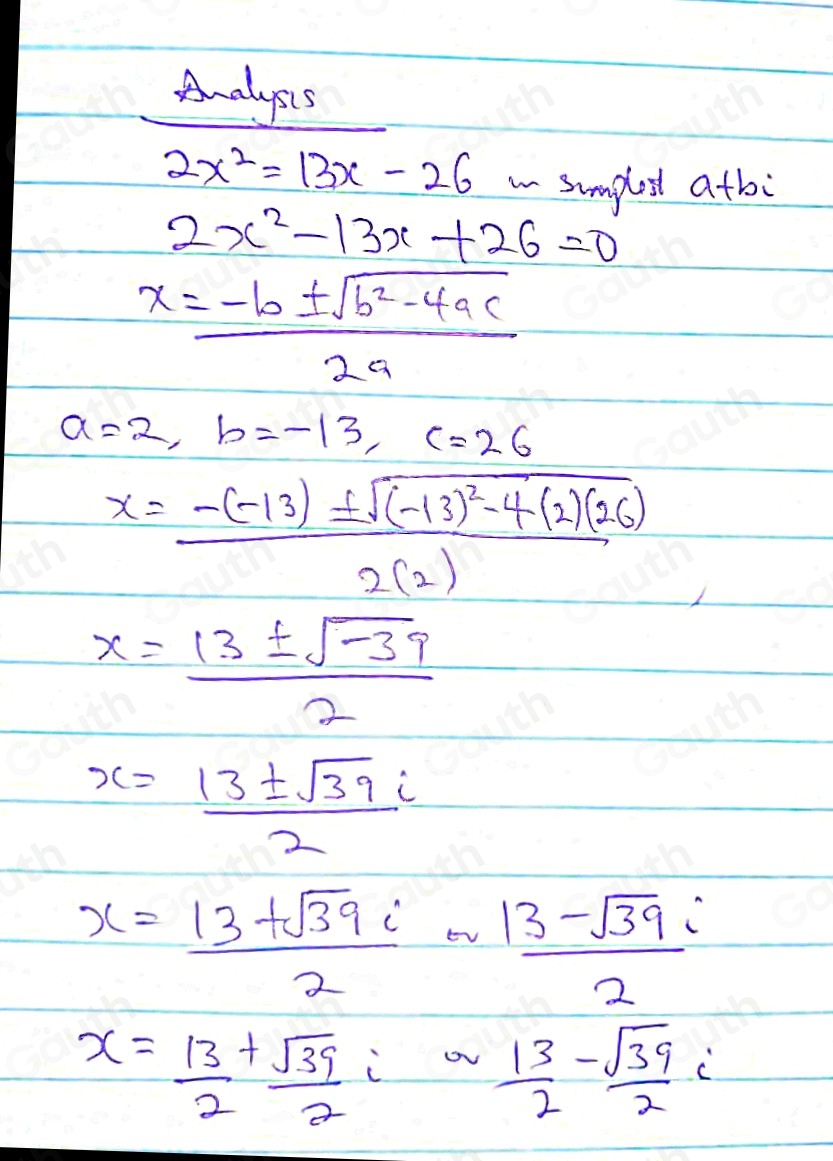 Analysis
2x² = 13x - 26 in simplest a+bi
2x² - 13x + 26 = 0
x = -b ± √(b² - 4ac)
2a
a = 2, b = -13, c = 26
x = -(-13) ± √((-13)² - 4(2)(26))
2(2)
x = 13 ± √-39
2
x = 13 ± √39 i
2
x = 13 + √39 i or 13 - √39 i
2 2
x = 13 + √39 i or 13 - √39 i
2 2 2 2
Gauth